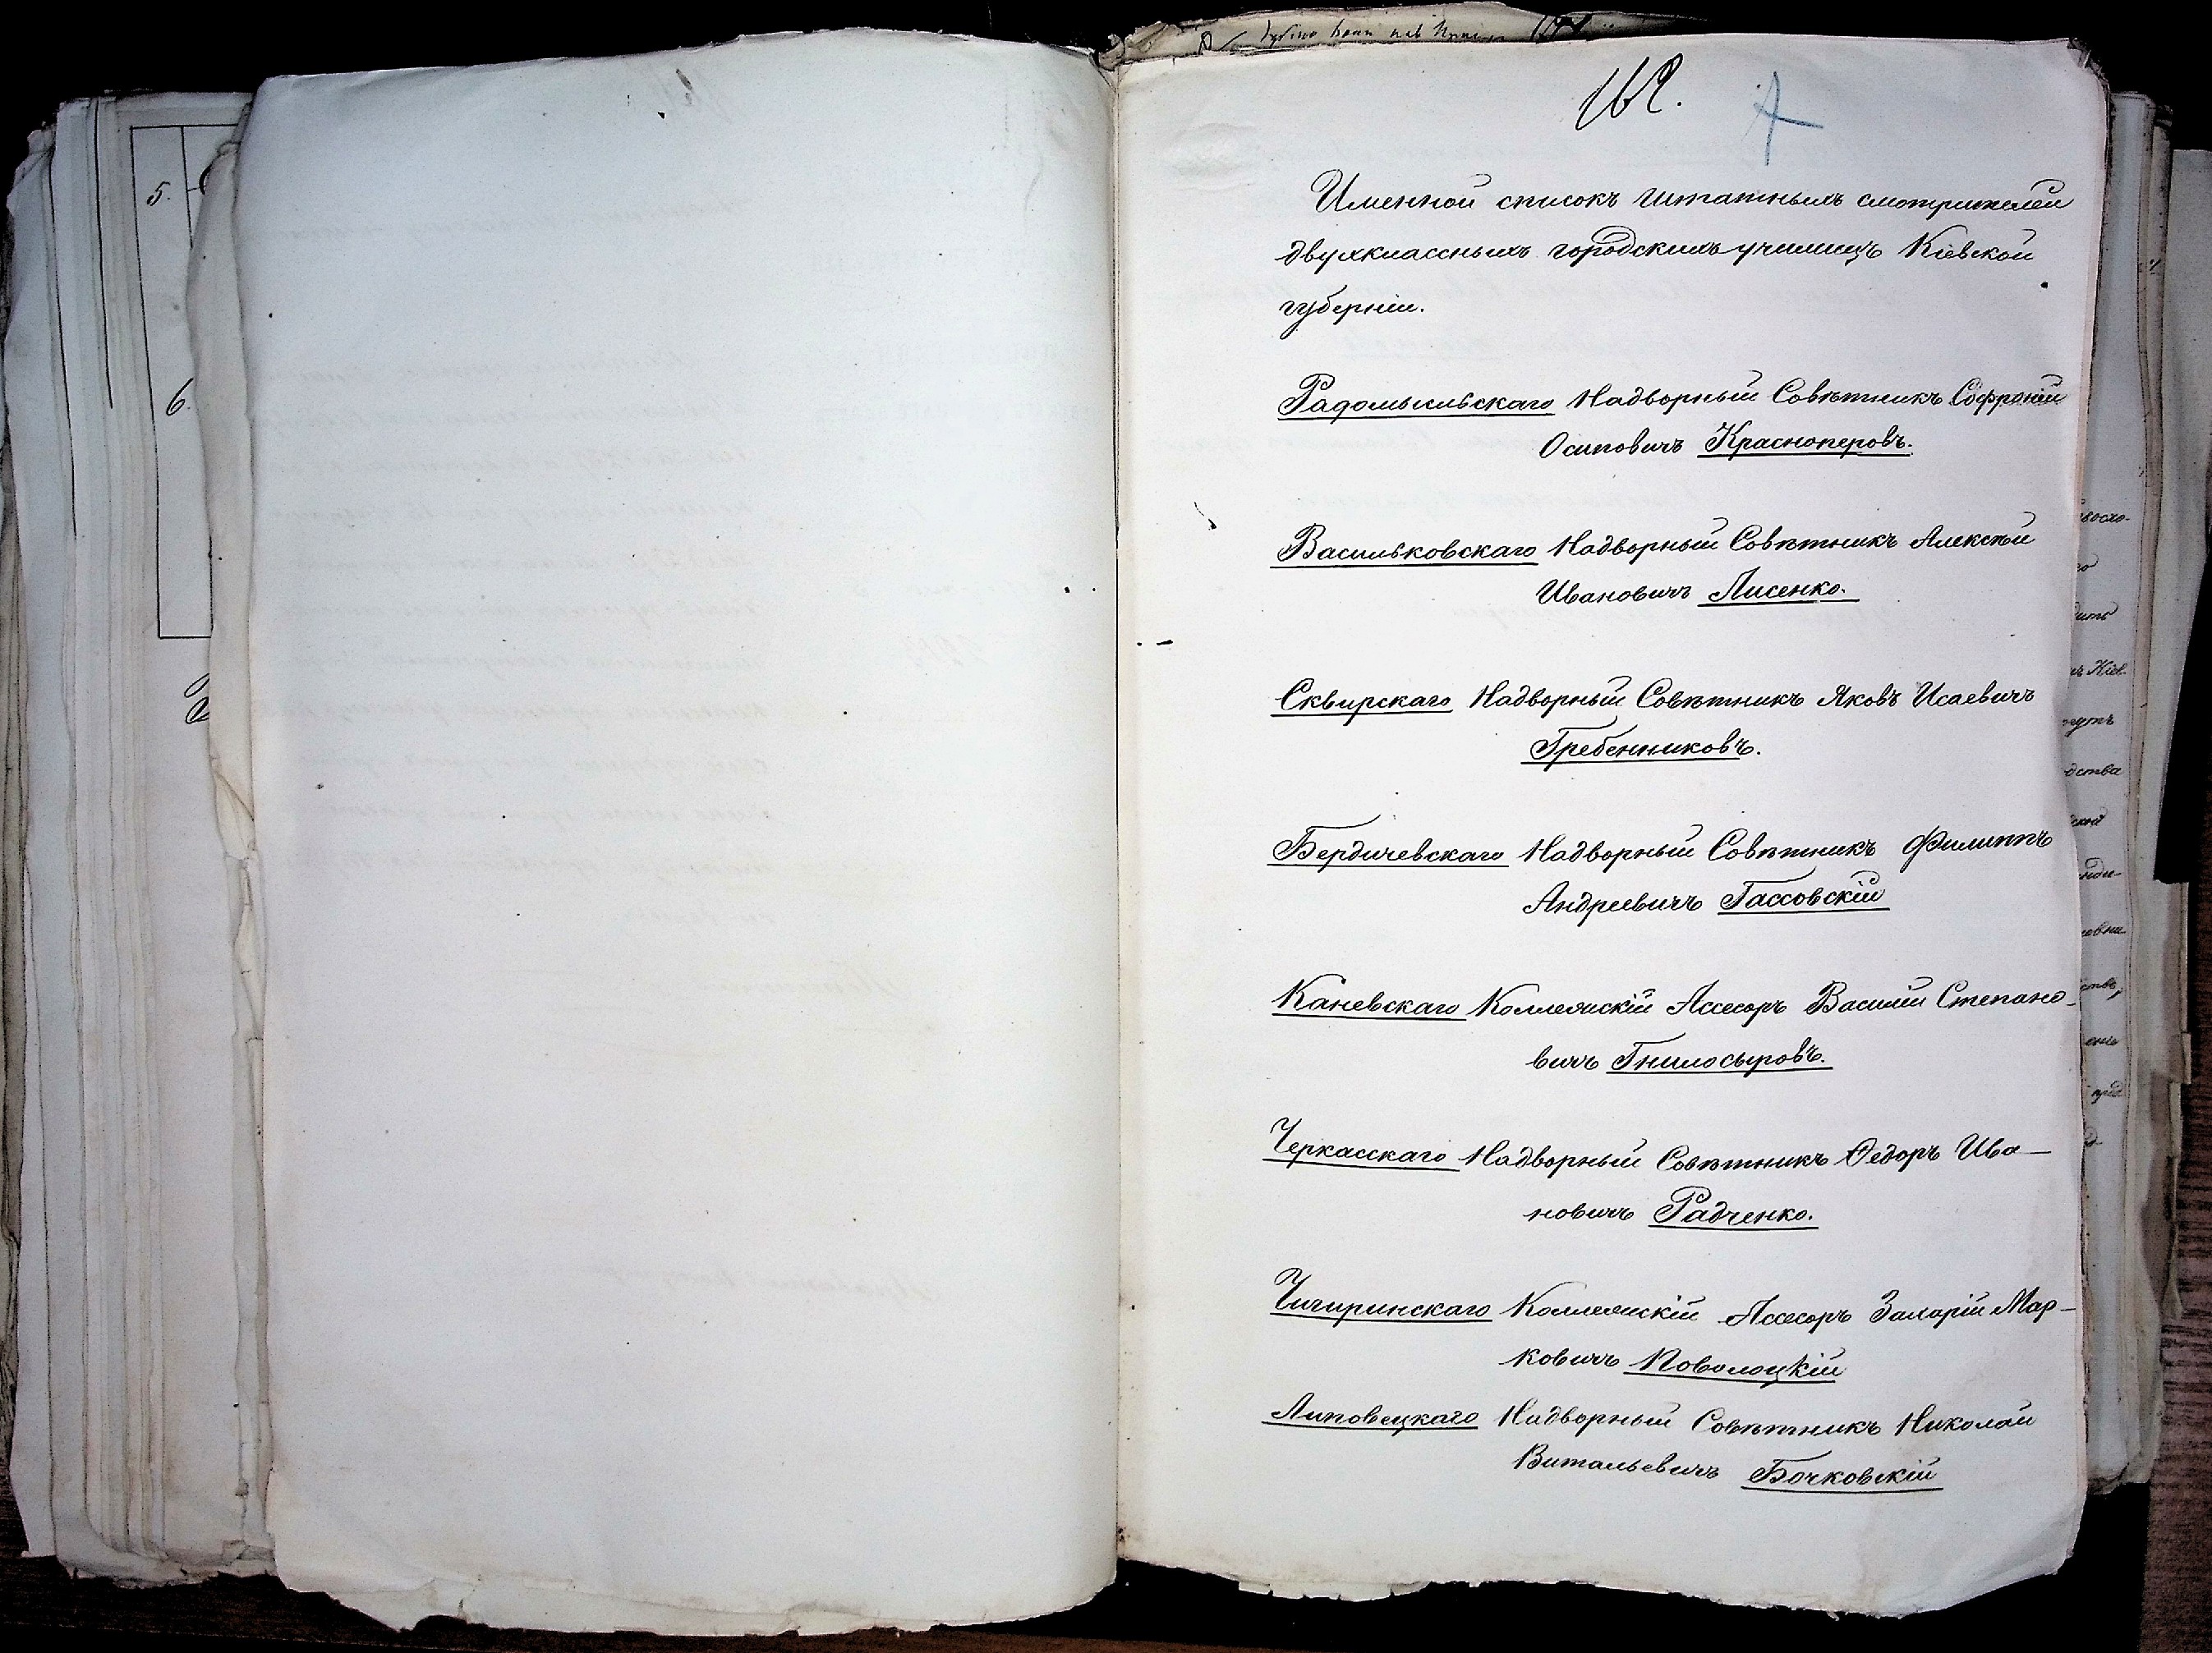 5.
6.
162.
Именной списокъ штатныхъ смотрителей
двухклассныхъ городскихъ училищъ Кіевской
губерніи.
Радомысльскаго Надворный Совѣтникъ Софроній
Осиповичъ Красноперовъ.
Васильковскаго Надворный Совѣтникъ Алексѣй
Ивановичъ Лисенко.
Сквирскаго Надворный Совѣтникъ Яковъ Исаевичъ
Гребенниковъ.
Бердичевскаго Надворный Совѣтникъ Филиппъ
Андреевичъ Гассовскій
Каневскаго Коллежскій Ассесоръ Василій Степано-
вичъ Гнилосыровъ.
Черкасскаго Надворный Совѣтникъ Ѳедоръ Ива-
новичъ Радченко.
Чигиринскаго Коллежскій Ассесоръ Захарій Мар-
ковичъ Поволоцкій
Липовецкаго Надворный Совѣтникъ Николай
Витальевичъ Бочковскій